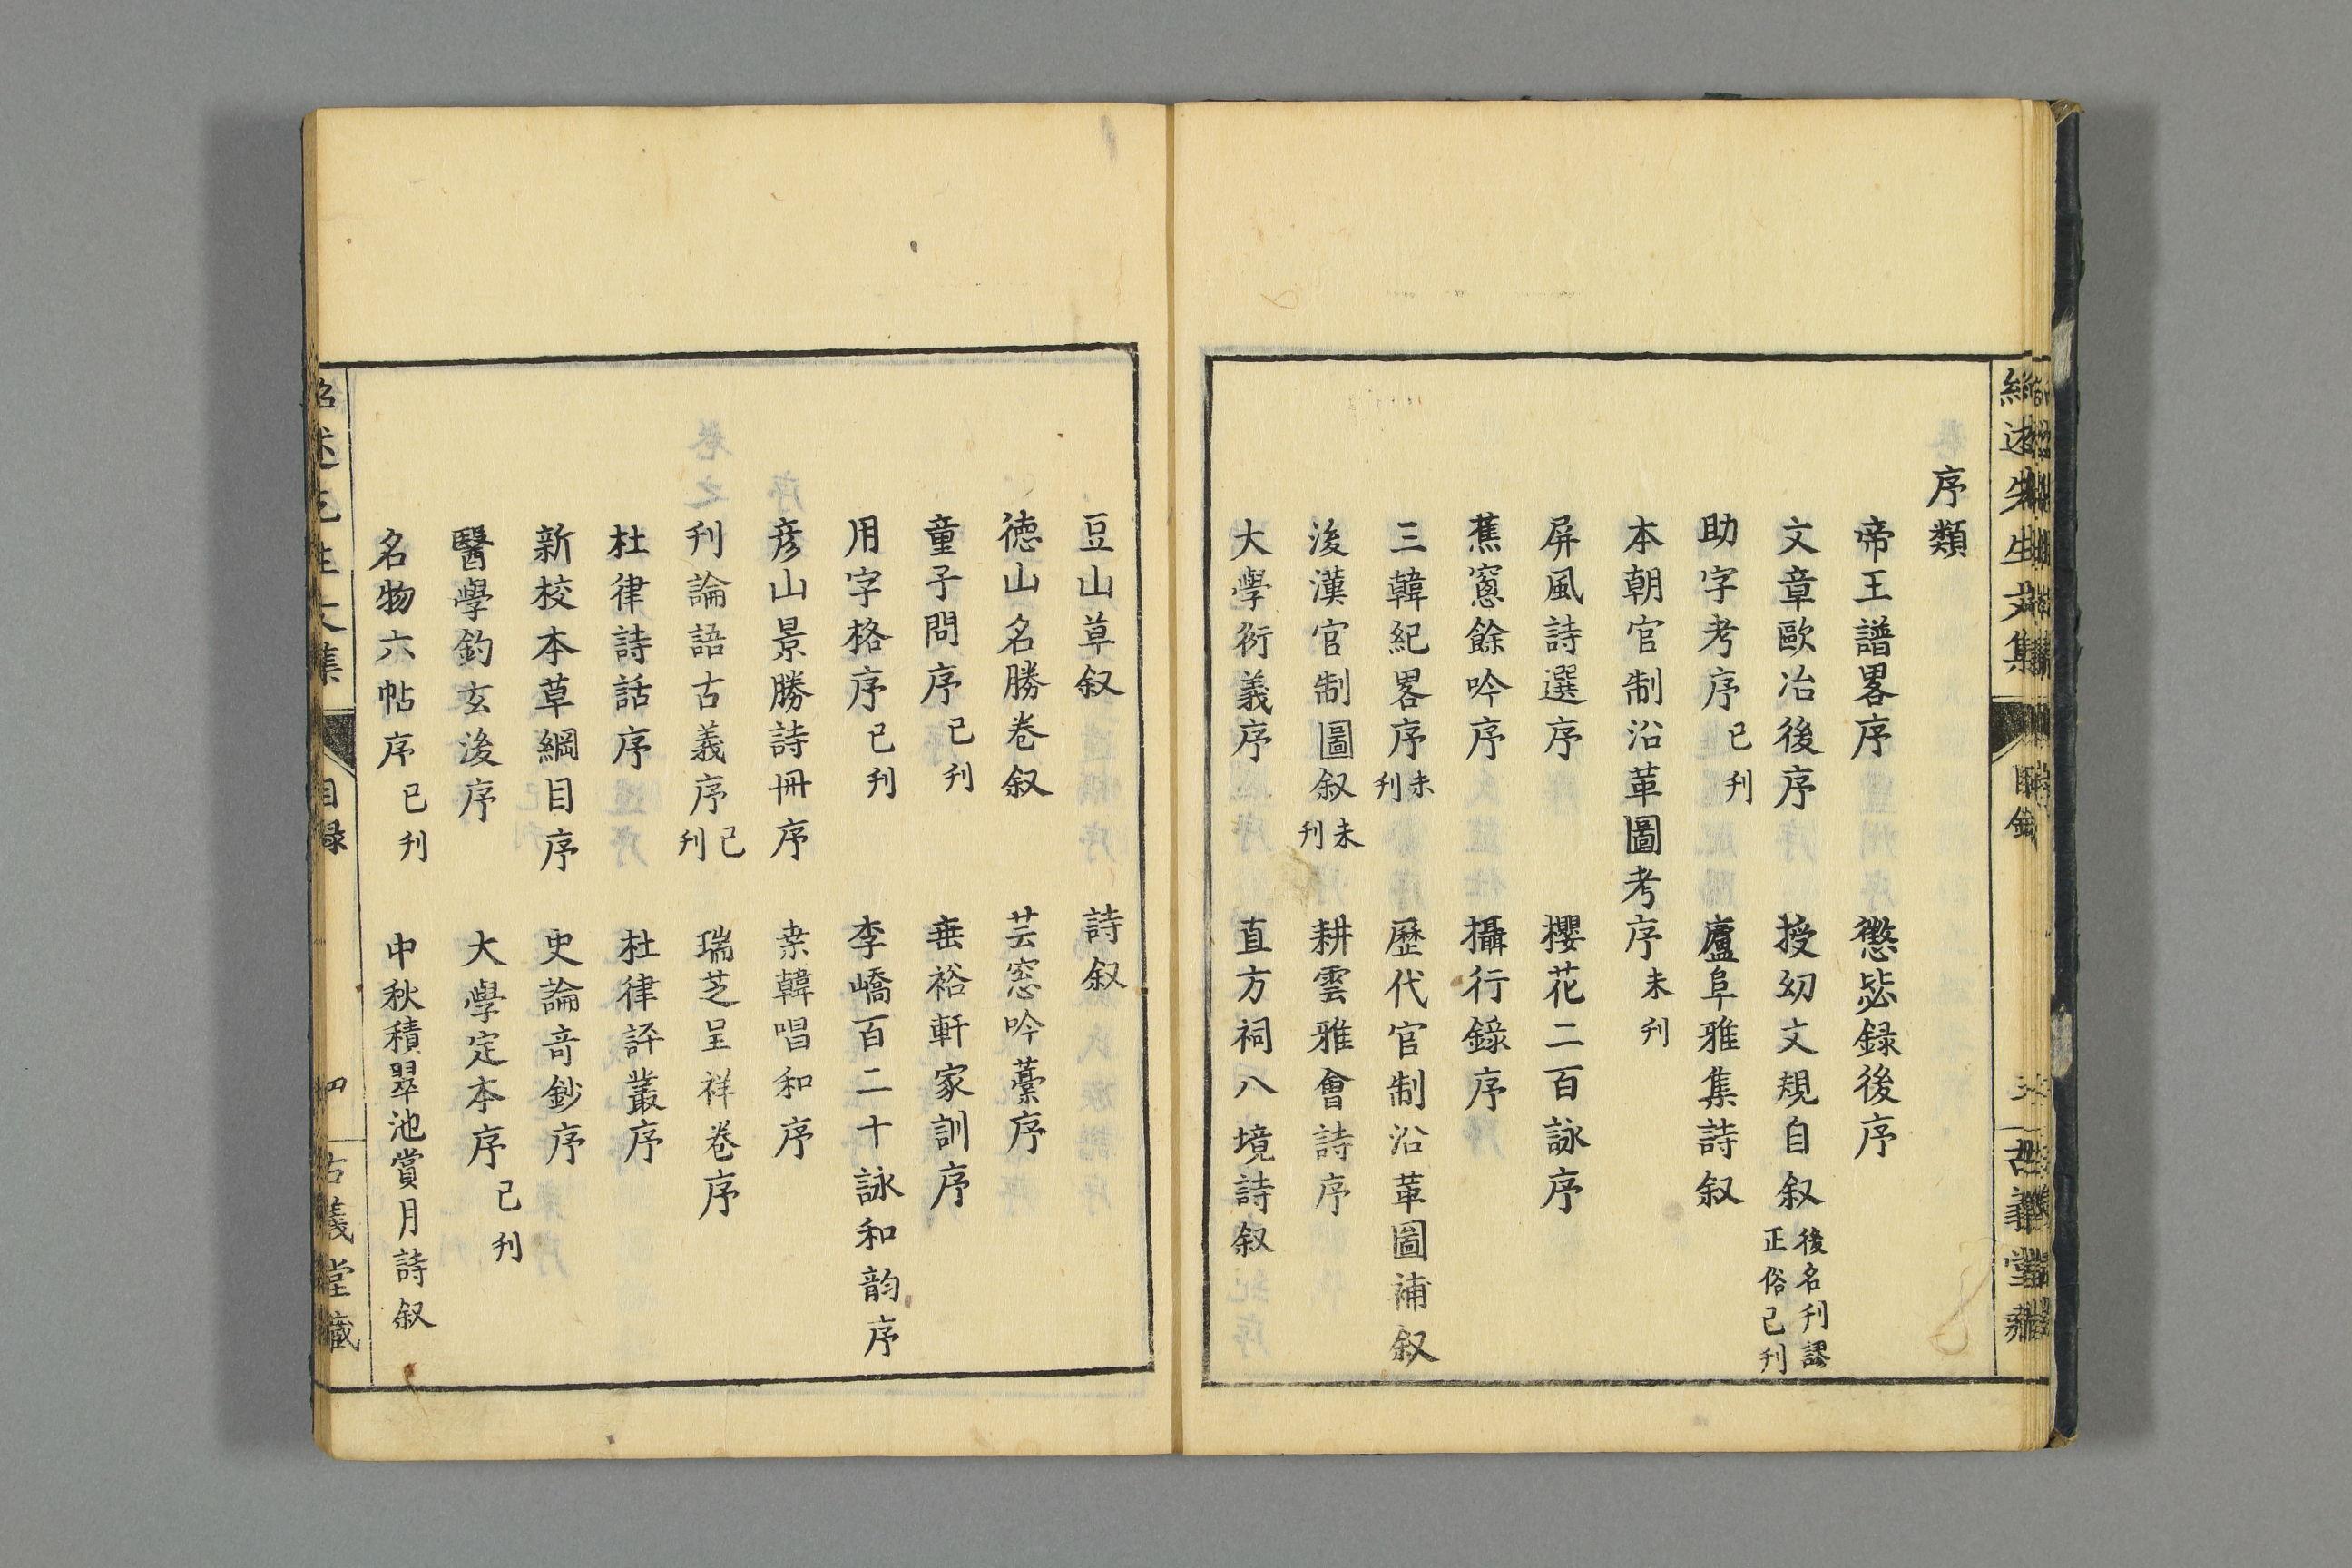 序類
帝王譜畧序　懲毖録後序
文章歐冶後序　授幼文規自叙 後名刊謬正俗已刊
助字考序 已刊　廬阜雅集詩叙
本朝官制沿革圖考序 未刊
屏風詩選序　櫻花二百詠序
蕉窻餘吟序　攝行錄序
三韓紀畧序 未刊　歷代官制沿革圖補叙
後漢官制圖叙 未刊　耕雲雅會詩序
大學衍義序　直方祠八境詩叙
豆山草叙　詩叙
徳山名勝巻叙　芸窓吟藁序
童子問序 已刊　垂裕軒家訓序
用字格序 已刊　李嶠百二十詠和韵序
彦山景勝詩冊序　桒韓唱和序
刊論語古義序 已刊　瑞芝呈祥巻序
杜律詩話序　杜律評叢序
新校本草綱目序　史論竒鈔序
醫學鈞玄後序　大學定本序 已刊
名物六帖序 已刊　中秋積翠池賞月詩叙
紹述先生文集　目録　四　古義堂藏